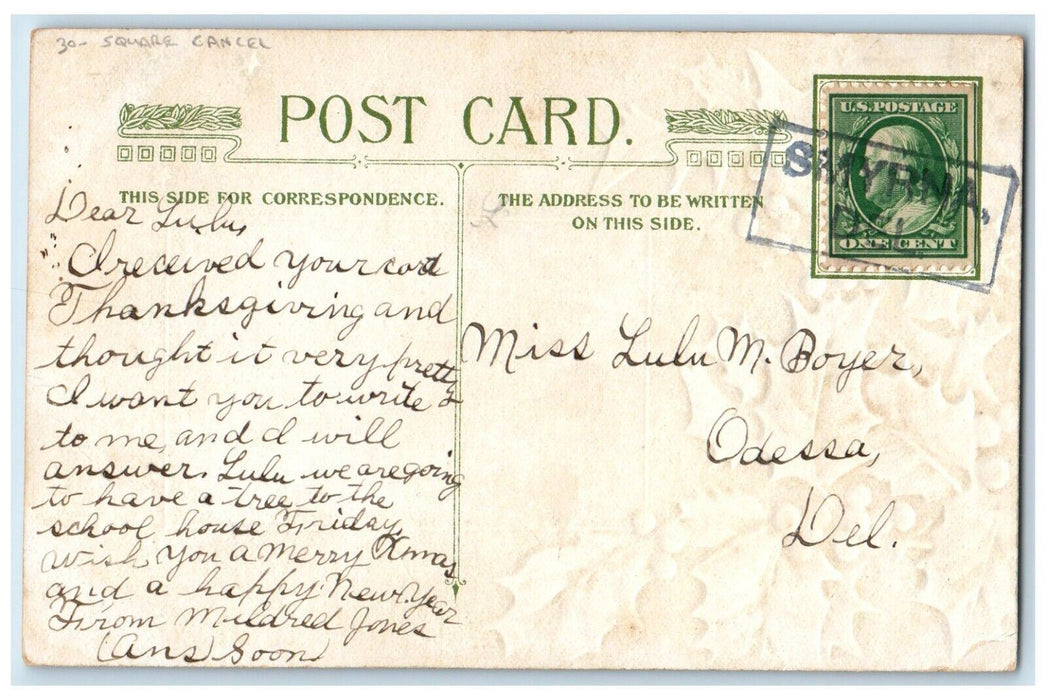 30- SQUARE CANCEL
POST CARD.
THIS SIDE FOR CORRESPONDENCE.
THE ADDRESS TO BE WRITTEN
ON THIS SIDE.
U.S. POSTAGE
ONE CENT
SMYRNA,
DEL.
Dear Lulu,
I received your card
Thanksgiving and
thought it very pretty
I want you to write
to me, and I will
answer. Lulu we are going
to have a tree to the
school house Friday,
wish you a Merry Xmas
and a happy New Year
From Mildred Jones
(Ans) Soon)
Miss Lulu M. Boyer,
Odessa,
Del.